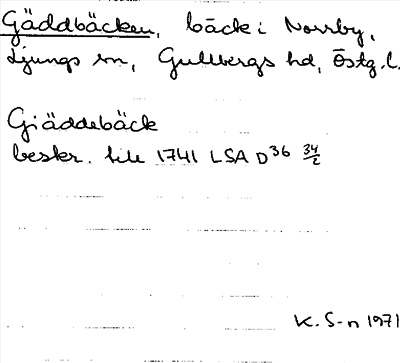 Gäddbäcken, bäck i Norrby,
Ljungs sn, Gullbergs hd, Östg. l.
Giäddebäck
beskr. till 1741 LSA D36 34/2
K. S-n 1971